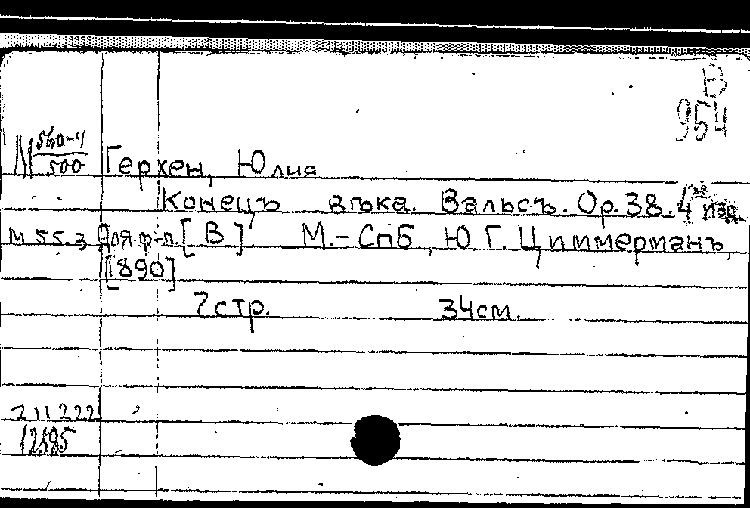 В
954
М 560-4/500 Герхен, Юлия
Конецъ вѣка. Вальсъ. Op. 38. 4ое изд.
М 55.3 Для ф-п. [В] М.-СпБ, Ю.Г. Циммерманъ,
[1890]
7 стр. 34 см.
211222